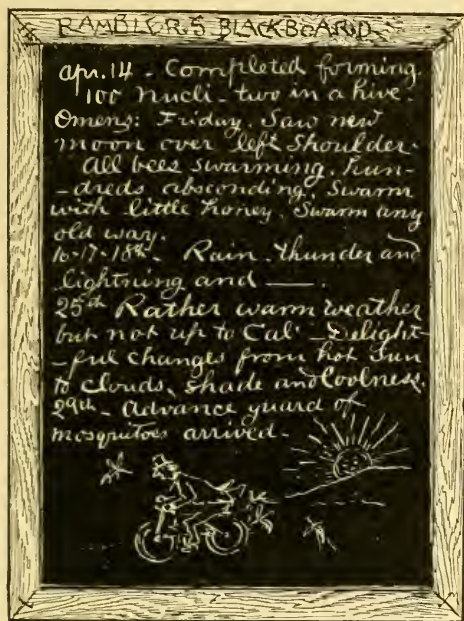 RAMBLER'S BLACKBOARD
Apr. 14 - Completed forming
100 nucli - two in a hive.
Omens: Friday. Saw new
moon over left shoulder.
All bees swarming. Hun-
-dreds absconding. Swarm
with little honey. Swarm any
old way.
16-17-18th - Rain. thunder and
lightning and ——.
25th Rather warm weather
but not up to Cal - Delight-
-ful changes from hot sun
to clouds, shade and coolness.
29th - Advance guard of
mosquitoes arrived -